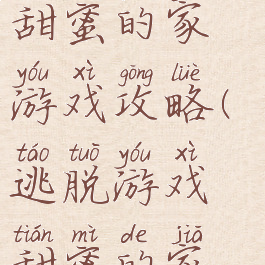 甜蜜的家
yóu xì gōng lüè
游戏攻略(
táo tuō yóu xì
逃脱游戏
tián mì de jiā
甜蜜的家